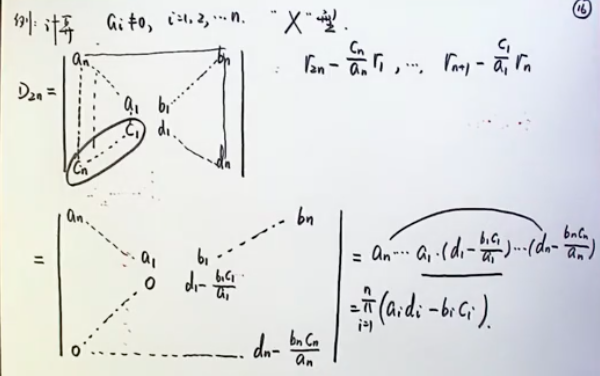 例: 计算 ai≠0, i=1,2,…n. "X"型. ⑯
D2n = | an bn
a1 b1
c1 d1
cn dn |
r2n - cn/an r1, …, rn+1 - c1/a1 rn
= | an bn
a1 b1
0 d1 - b1c1/a1
0 dn - bncn/an |
= an … a1 · (d1 - b1c1/a1) … (dn - bncn/an)
= ∏ i=1 n (aidi - bici).